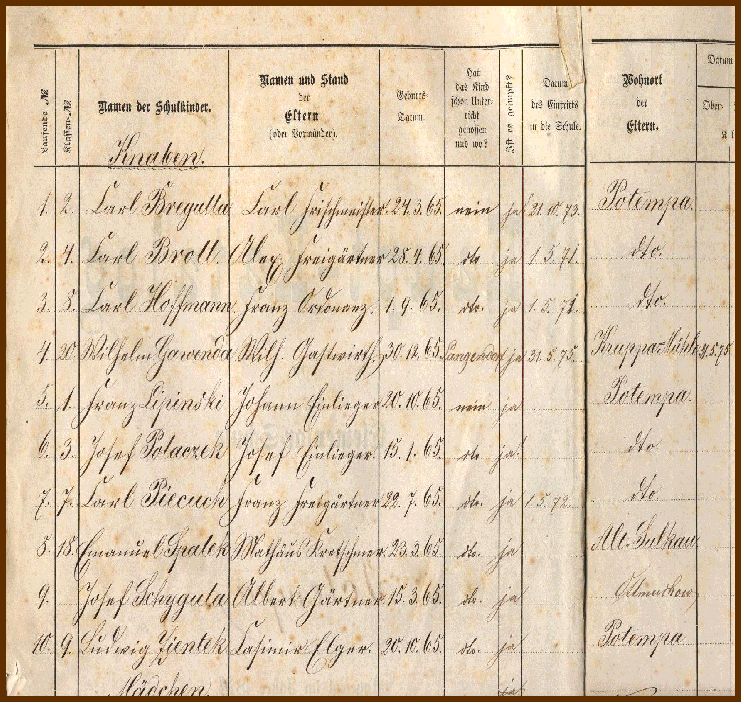 Laufende №
Klassen-№
Namen der Schulkinder.
Namen und Stand
der
Eltern
(oder Vormünder).
Geburts-
Datum.
Hat
das Kind
schon Unter-
richt
genossen
und wo?
Ist es geimpft?
Datum
des Eintritts
in die Schule.
Wohnort
der
Eltern.
Datum
Ober-
Knaben.
1. 2. Carl Bregulla Carl Frischmeister. 24. 3. 65. nein ja 21. 10. 73. Potempa.
2. 4. Carl Brott. Alex Freigärtner 28. 4. 65. dto. ja 1. 5. 71. dto.
3. 8. Carl Hoffmann Franz Ordonanz. 1. 9. 65. dto. ja 1. 5. 71. dto.
4. 20. Wilhelm Gawenda Wilh. Gastwirth. 30. 12. 65. Langendorf ja 31. 5. 75. Kruppa-Mühle 31. 5. 75.
5. 1. Franz Lipinski Johann Einlieger. 20. 10. 65. nein ja Potempa.
6. 3. Josef Polaczek Josef Einlieger. 15. 1. 65. dto. ja dto
7. 7. Carl Piecuch Franz Freigärtner 22. 7. 65. dto. ja 1. 5. 72. dto.
8. 18. Emanuel Spalek Mathäus Kretschmer 23. 3. 65. dto. ja
9. Josef Schygula Albert Gärtner 15. 3. 65. dto. ja
10. 9. Ludwig Zientek Casimir Elger. 20. 10. 65. dto. ja Potempa
Mädchen. ja